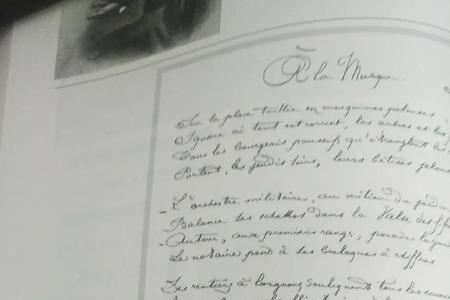 À la Musique
Sur la place taillée en mesquines pelouses
Square où tout est correct, les arbres et les
Tous les bourgeois poussifs, qu'étranglent les
Portent, les jeudis soirs, leurs bêtises jalous
– L'orchestre militaire, au milieu du jardin
Balance ses schakos dans la Valse des fif
– Autour, aux premiers rangs, parade le gan
Le notaire pend à ses breloques à chiffres
Des rentiers à lorgnons soulignent tous les couacs